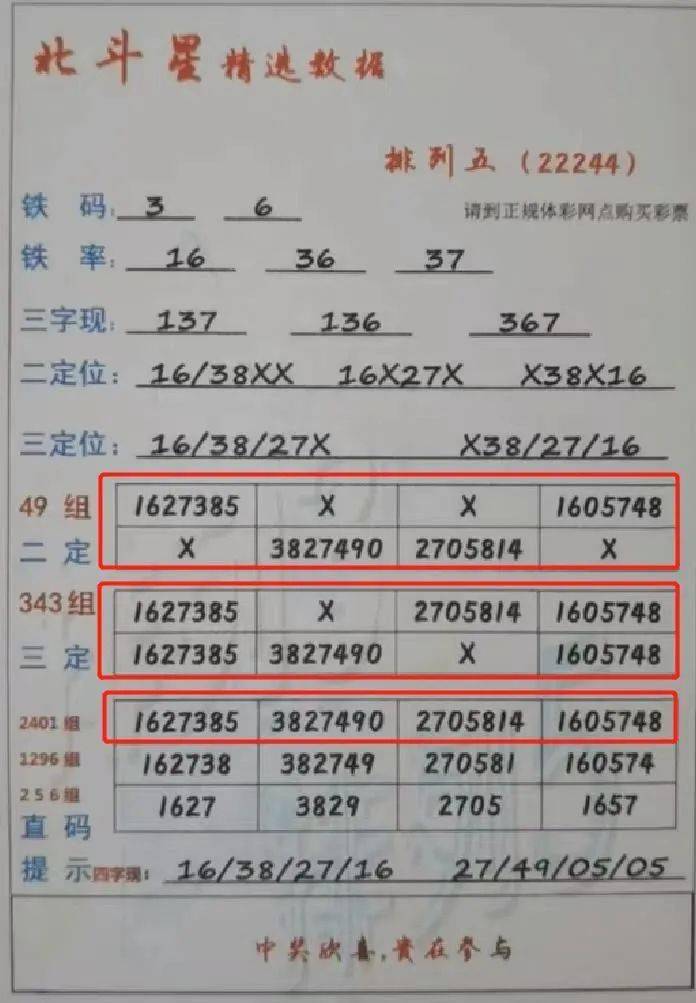 北斗星精选数据
排列五（22244）
铁 码: 3 6
请到正规体彩网点购买彩票
铁 率: 16 36 37
三字现: 137 136 367
二定位: 16/38XX 16X27X X38X16
三定位: 16/38/27X X38/27/16
49 组 1627385 X X 1605748
二 定 X 3827490 2705814 X
343组 1627385 X 2705814 1605748
三 定 1627385 3827490 X 1605748
2401 组 1627385 3827490 2705814 1605748
1296 组 162738 382749 270581 160574
256组 1627 3829 2705 1657
直 码
提 示四字现: 16/38/27/16 27/49/05/05
中奖欣喜,贵在参与